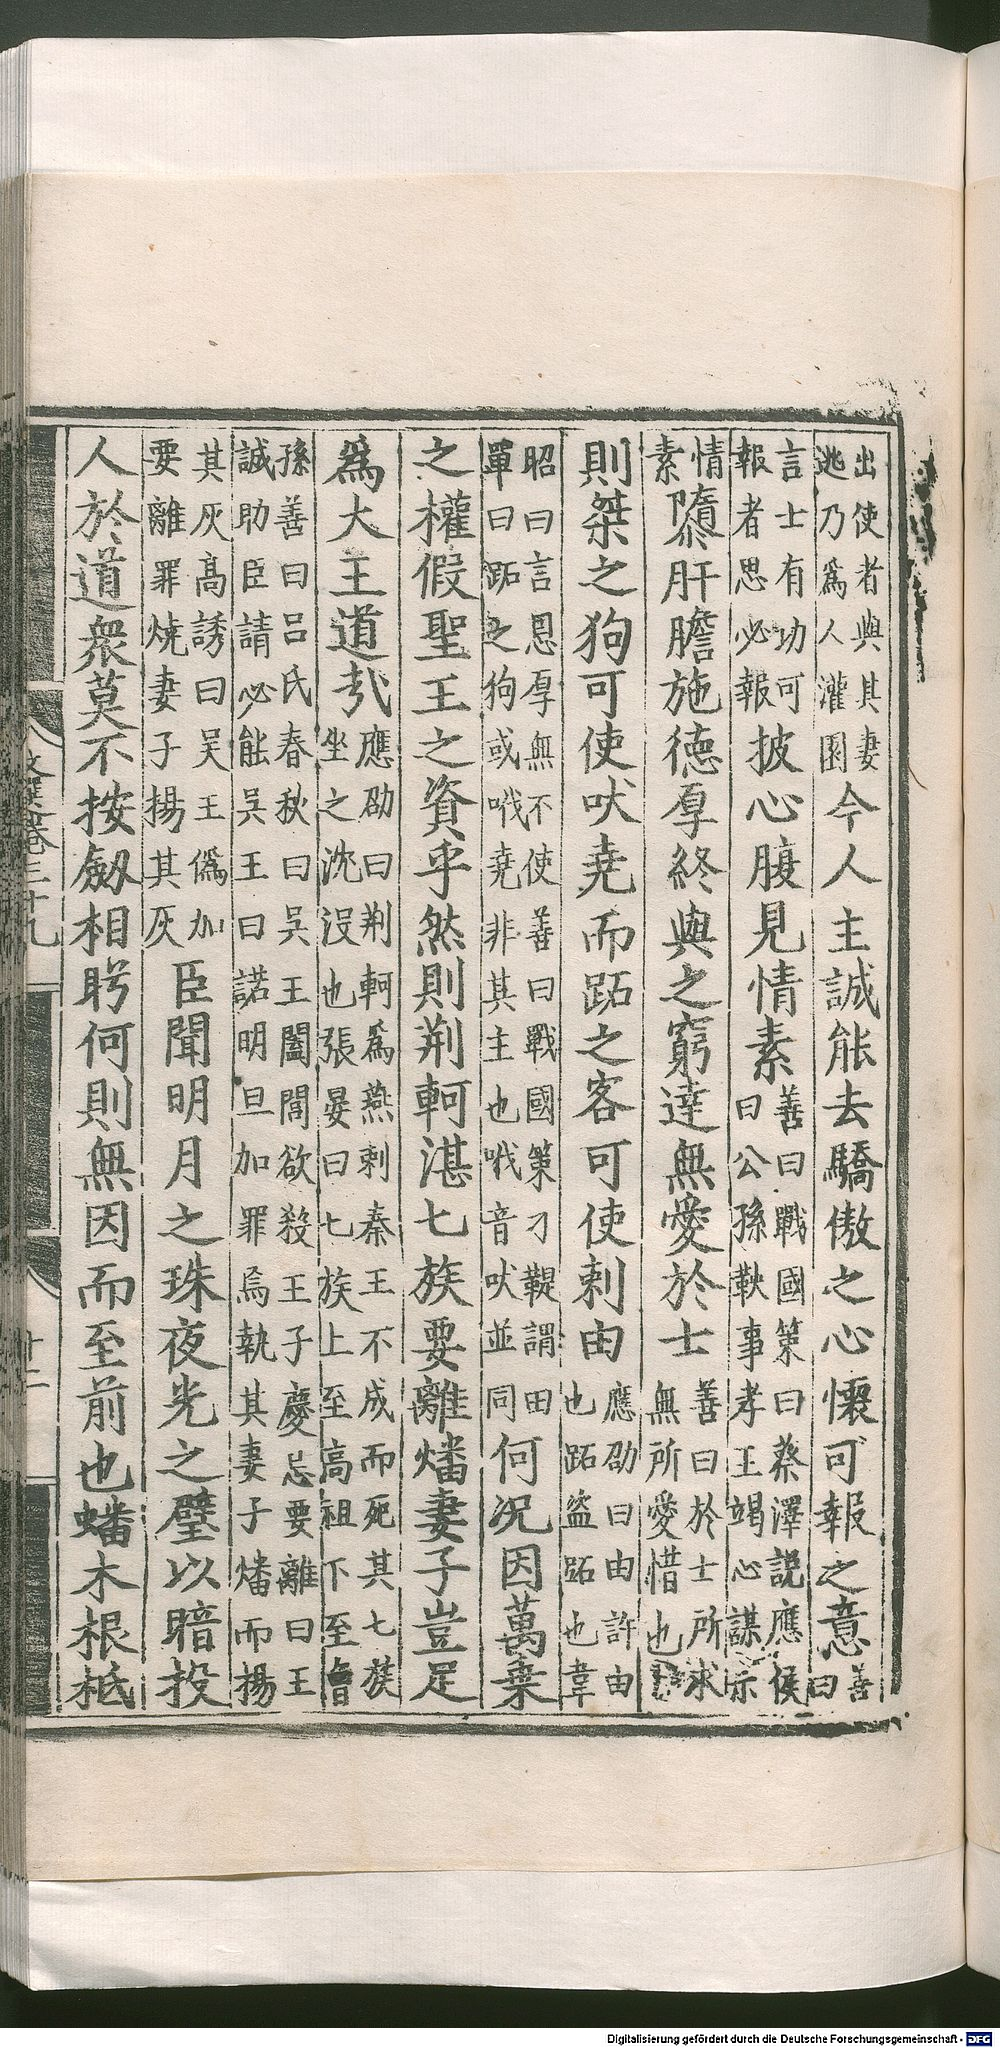 出使者與其妻逃乃爲人灌園今人主誠能去驕傲之心懷可報之意善曰
言士有功可報者思必報披心腹見情素善曰戰國策曰蔡澤説應侯曰公孫鞅事孝王竭心謀示
情素隳肝膽施德厚終與之窮達無愛於士善曰於士所求無所愛惜也
則桀之狗可使吠堯而跖之客可使刺由應劭曰由許由也跖盜跖也韋
昭曰言恩厚無不使善曰戰國策刁鞮謂田單曰跖之狗或吠堯非其主也吠音吠並同何况因萬乗
之權假聖王之資乎然則荆軻湛七族要離燔妻子豈足
爲大王道㢤應劭曰荆軻爲燕刺秦王不成而死其七族坐之沈没也張晏曰七族上至高祖下至曾
孫善曰吕氏春秋曰吴王闔閭欲殺王子慶忌要離曰王誠助臣請必能吴王曰諾明旦加罪焉執其妻子燔而揚
其灰高誘曰吴王僞加要離罪焼妻子揚其灰臣聞明月之珠夜光之璧以暗投
人於道衆莫不按劒相眄何則無因而至前也蟠木根柢
文選卷三十九
十二
Digitalisierung gefördert durch die Deutsche Forschungsgemeinschaft - DFG